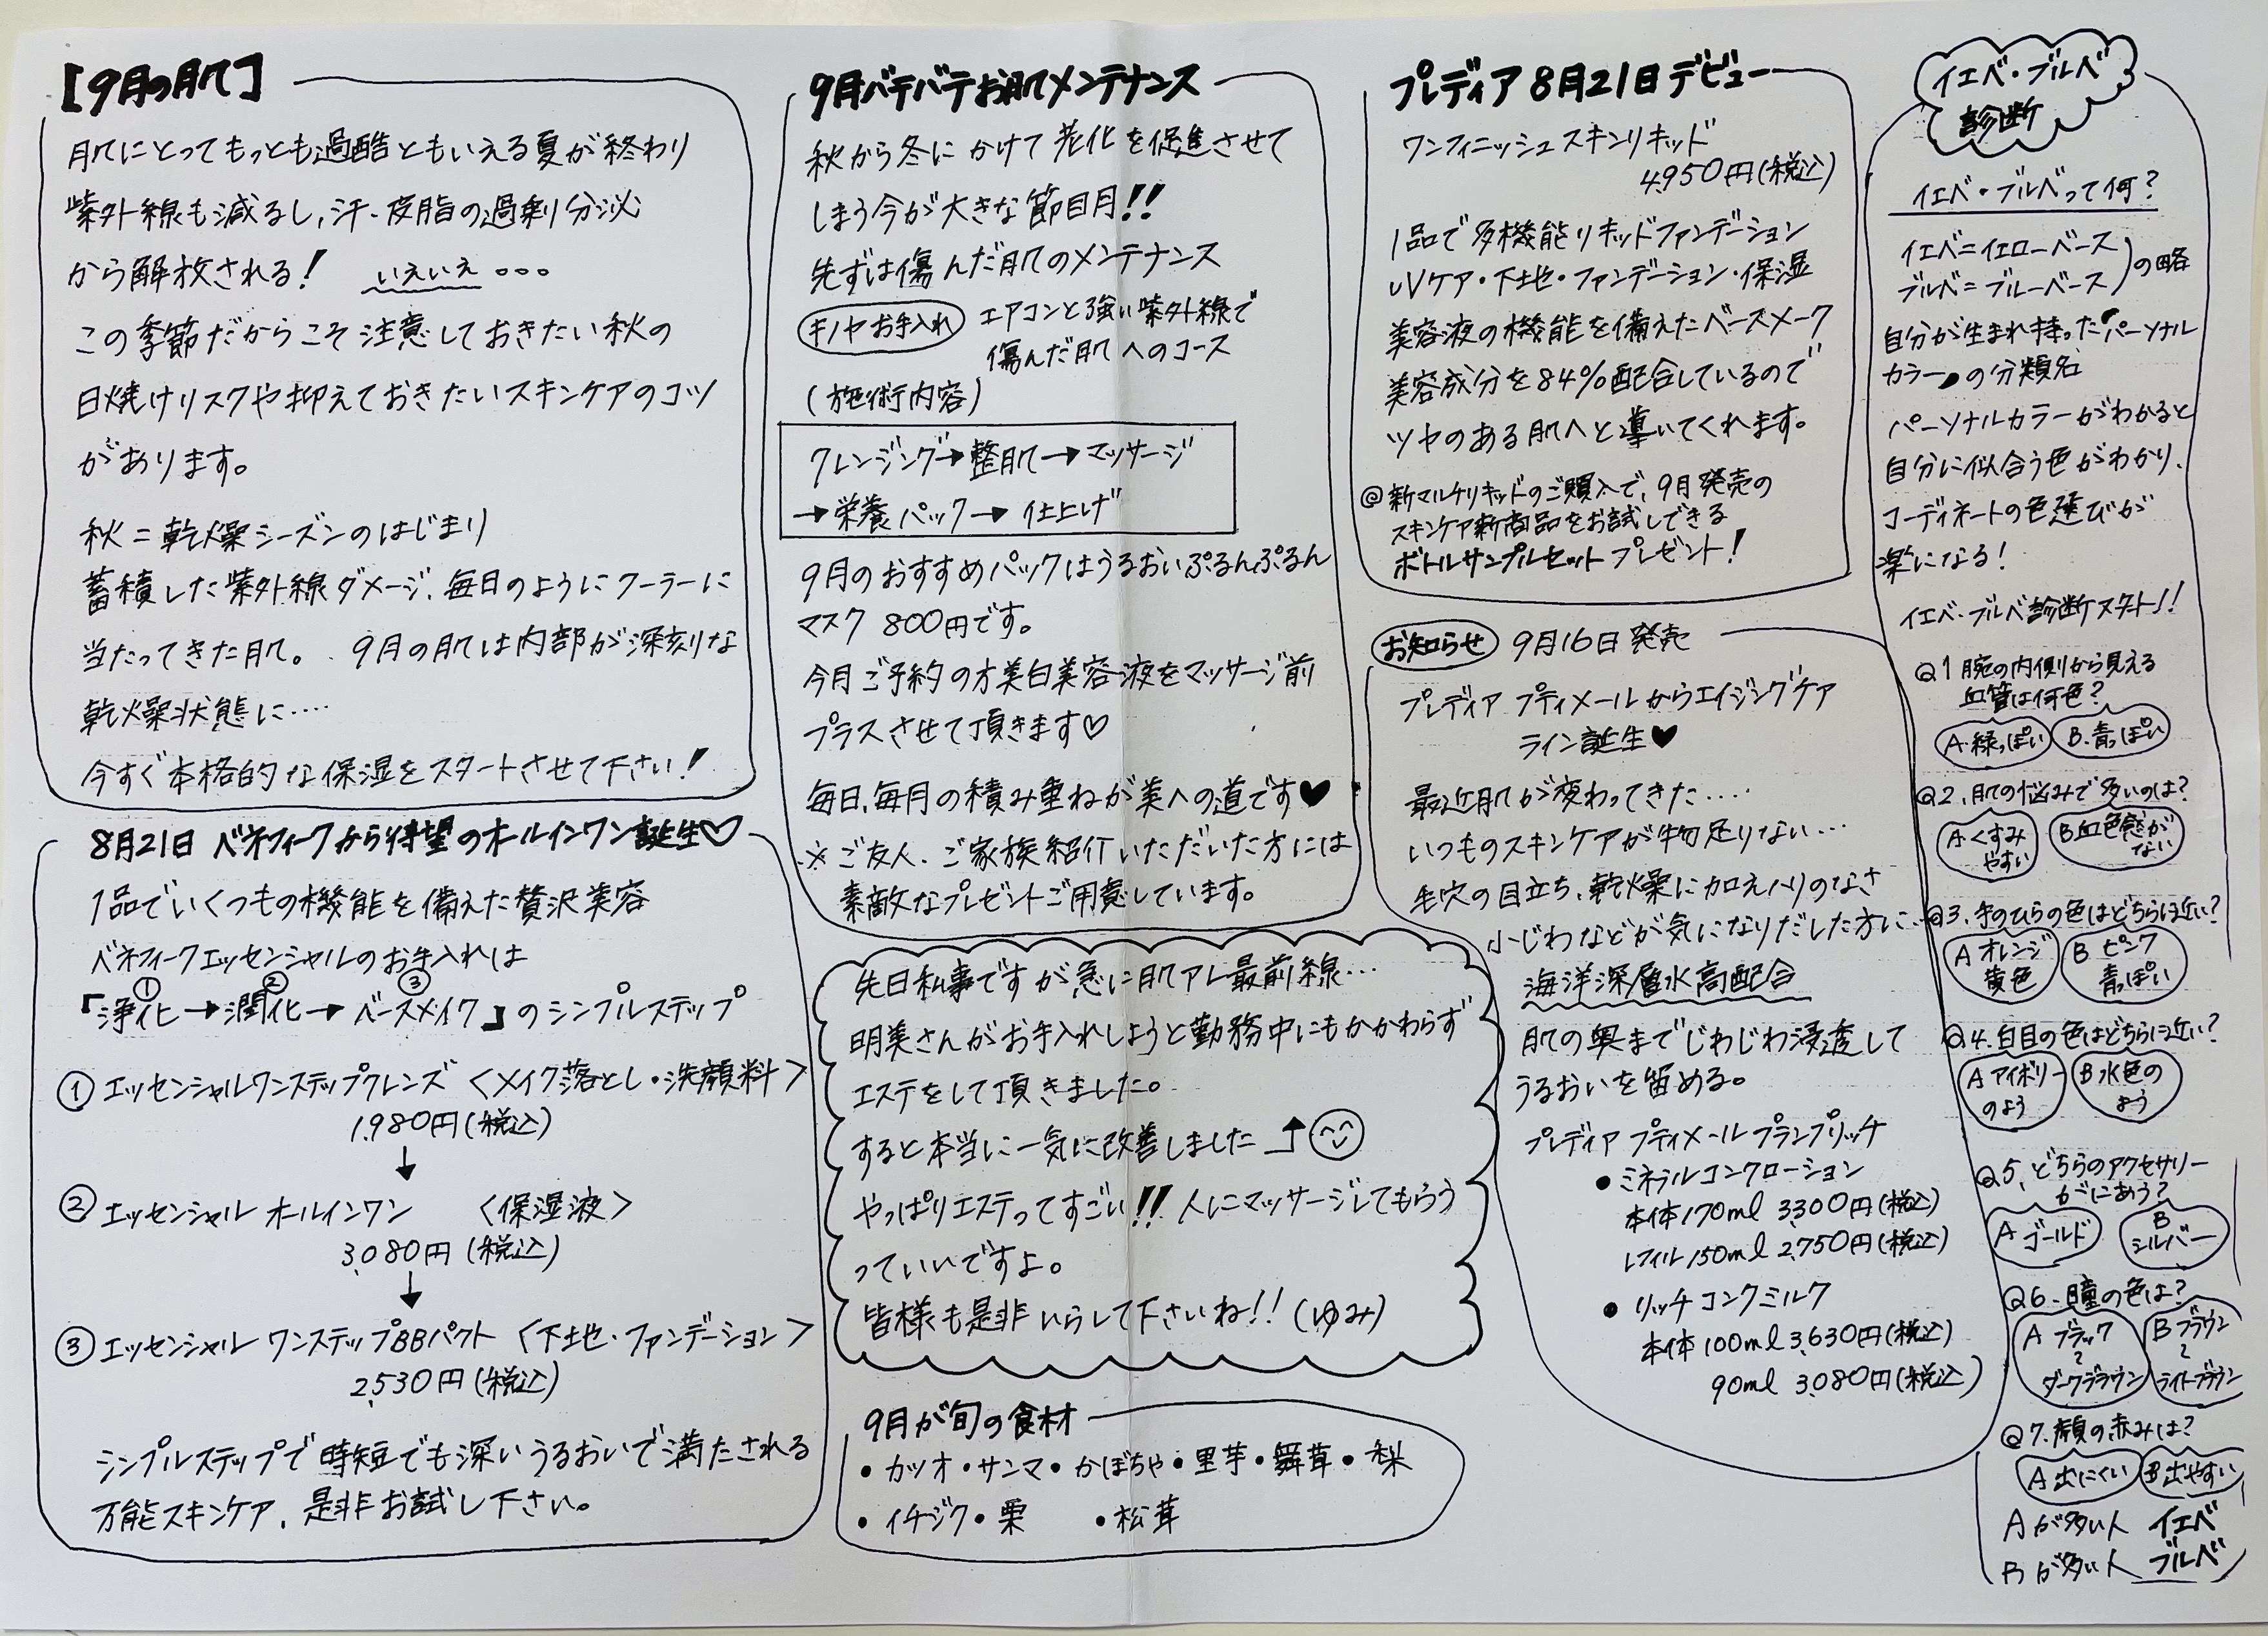 【9月の肌】
肌にとってもっとも過酷ともいえる夏が終わり
紫外線も減るし、汗・皮脂の過剰分泌
から解放される! いえいえ。。。
この季節だからこそ注意しておきたい秋の
日焼けリスクや抑えておきたいスキンケアのコツ
があります。
秋=乾燥シーズンのはじまり
蓄積した紫外線ダメージ、毎日のようにクーラーに
当たってきた肌。9月の肌は内部が深刻な
乾燥状態に‥‥
今すぐ本格的な保湿をスタートさせて下さい!
8月21日 ベネフィークから待望のオールインワン誕生♡
1品でいくつもの機能を備えた贅沢美容
ベネフィークエッセンシャルのお手入れは
① ② ③
「浄化→潤化→ベースメイク」のシンプルステップ
① エッセンシャルワンステップクレンズ 〈メイク落とし・洗顔料〉
1,980円(税込)
↓
② エッセンシャル オールインワン 〈保湿液〉
3,080円(税込)
↓
③ エッセンシャル ワンステップBBパクト 〈下地・ファンデーション〉
2,530円(税込)
シンプルステップで時短でも深いうるおいで満たされる
万能スキンケア、是非お試し下さい。
9月バテバテお肌メンテナンス
秋から冬にかけて老化を促進させて
しまう今が大きな節目月!!
先ずは傷んだ肌のメンテナンス
キノヤお手入れ エアコンと強い紫外線で
傷んだ肌へのコース
(施術内容)
クレンジング→整肌→マッサージ
→栄養パック→仕上げ
9月のおすすめパックはうるおいぷるんぷるん
マスク 800円です。
今月ご予約の方美白美容液をマッサージ前
プラスさせて頂きます♡
毎日、毎月の積み重ねが美への道です♥
※ご友人、ご家族紹介いただいた方には
素敵なプレゼントご用意しています。
先日私事ですが急に肌アレ最前線…
明美さんがお手入れしようと勤務中にもかかわらず
エステをして頂きました。
すると本当に一気に改善しました
やっぱりエステってすごい!! 人にマッサージしてもらう
っていいですよ。
皆様も是非いらして下さいね!! (ゆみ)
9月が旬の食材
・カツオ・サンマ・かぼちゃ・里芋・舞茸・梨
・イチジク・栗 ・松茸
プレディア8月21日デビュー
ワンフィニッシュスキンリキッド
4,950円(税込)
1品で多機能リキッドファンデーション
UVケア・下地・ファンデーション・保湿
美容液の機能を備えたベースメーク
美容成分を84%配合しているので
ツヤのある肌へと導いてくれます。
@新マルチリキッドのご購入で、9月発売の
スキンケア新商品をお試しできる
ボトルサンプルセットプレゼント!
お知らせ 9月16日発売
プレディア プティメールからエイジングケア
ライン誕生♥
最近肌が変わってきた‥‥
いつものスキンケアが物足りない…
毛穴の目立ち、乾燥に加えハリのなさ
小じわなどが気になりだした方に‥
海洋深層水高配合
肌の奥までじわじわ浸透して
うるおいを留める。
プレディア プティメール プランプリッチ
・ミネラルコンクローション
本体170ml 3,300円(税込)
レフィル150ml 2,750円(税込)
・リッチコンクミルク
本体100ml 3,630円(税込)
90ml 3,080円(税込)
イエベ・ブルベ
診断
イエベ・ブルベって何?
イエベ=イエローベース
ブルベ=ブルーベース)の略
自分が生まれ持った"パーソナル
カラー"の分類名
パーソナルカラーがわかると
自分に似合う色がわかり、
コーディネートの色選びが
楽になる!
イエベ・ブルベ診断スタート!!
Q1 腕の内側から見える
血管は何色?
A.緑っぽい B.青っぽい
Q2、肌の悩みで多いのは?
A くすみやすい B 血色感がない
Q3、手のひらの色はどちらに近い?
A オレンジ黄色 B ピンク青っぽい
Q4、白目の色はどちらに近い?
A アイボリーのよう B 水色のよう
Q5、どちらのアクセサリー
がにあう?
A ゴールド B シルバー
Q6、瞳の色は?
A ブラック〜ダークブラウン B ブラウン〜ライトブラウン
Q7、顔の赤みは?
A 出にくい B 出やすい
Aが多い人 イエベ
Bが多い人 ブルベ